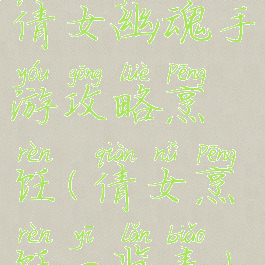 倩女幽魂手
yóu gōng lüè pēng
游攻略烹
rèn qiàn nǚ pēng
饪(倩女烹
rèn yī lǎn biǎo
饪一览表)